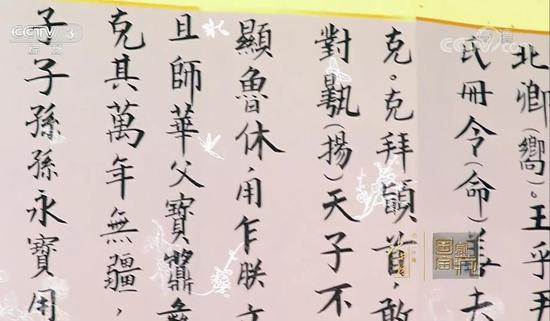 CCTV 3
综艺
北卿(嚮)。王乎尹
氏冊令(命)善夫
克。克拜首,敢
對(揚)天子不
顯魯休,用乍朕文
且師華父寶䵼彝
克其萬年無疆,
子子孫孫永寶用